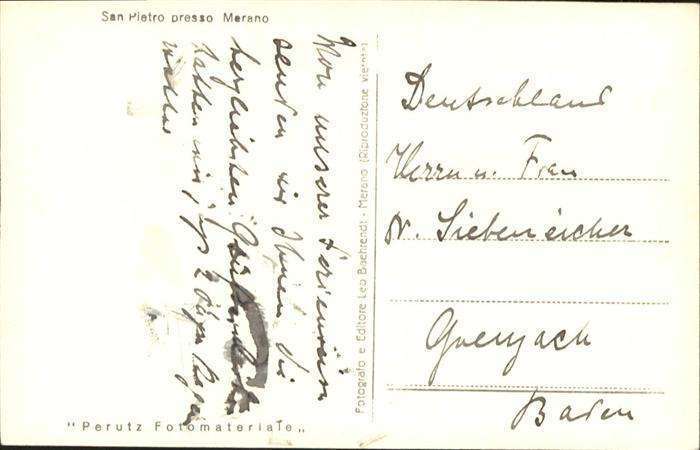 San Pietro presso Merano
Von unserer Ferienreise
senden wir Ihnen die
herzlichsten Grüße
hatten wir 2 Regen
Fotografo e Editore Leo Baehrendt - Merano (Riproduzione vietata)
Deutschland
Herrn u. Frau
Dr. Siebeneicher
Grenzach
Baden
"Perutz Fotomateriale„